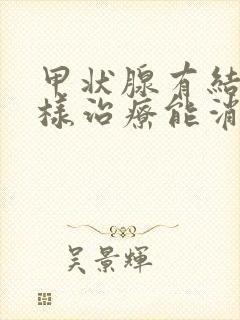 甲状腺有結
樣治療能消
吴景輝